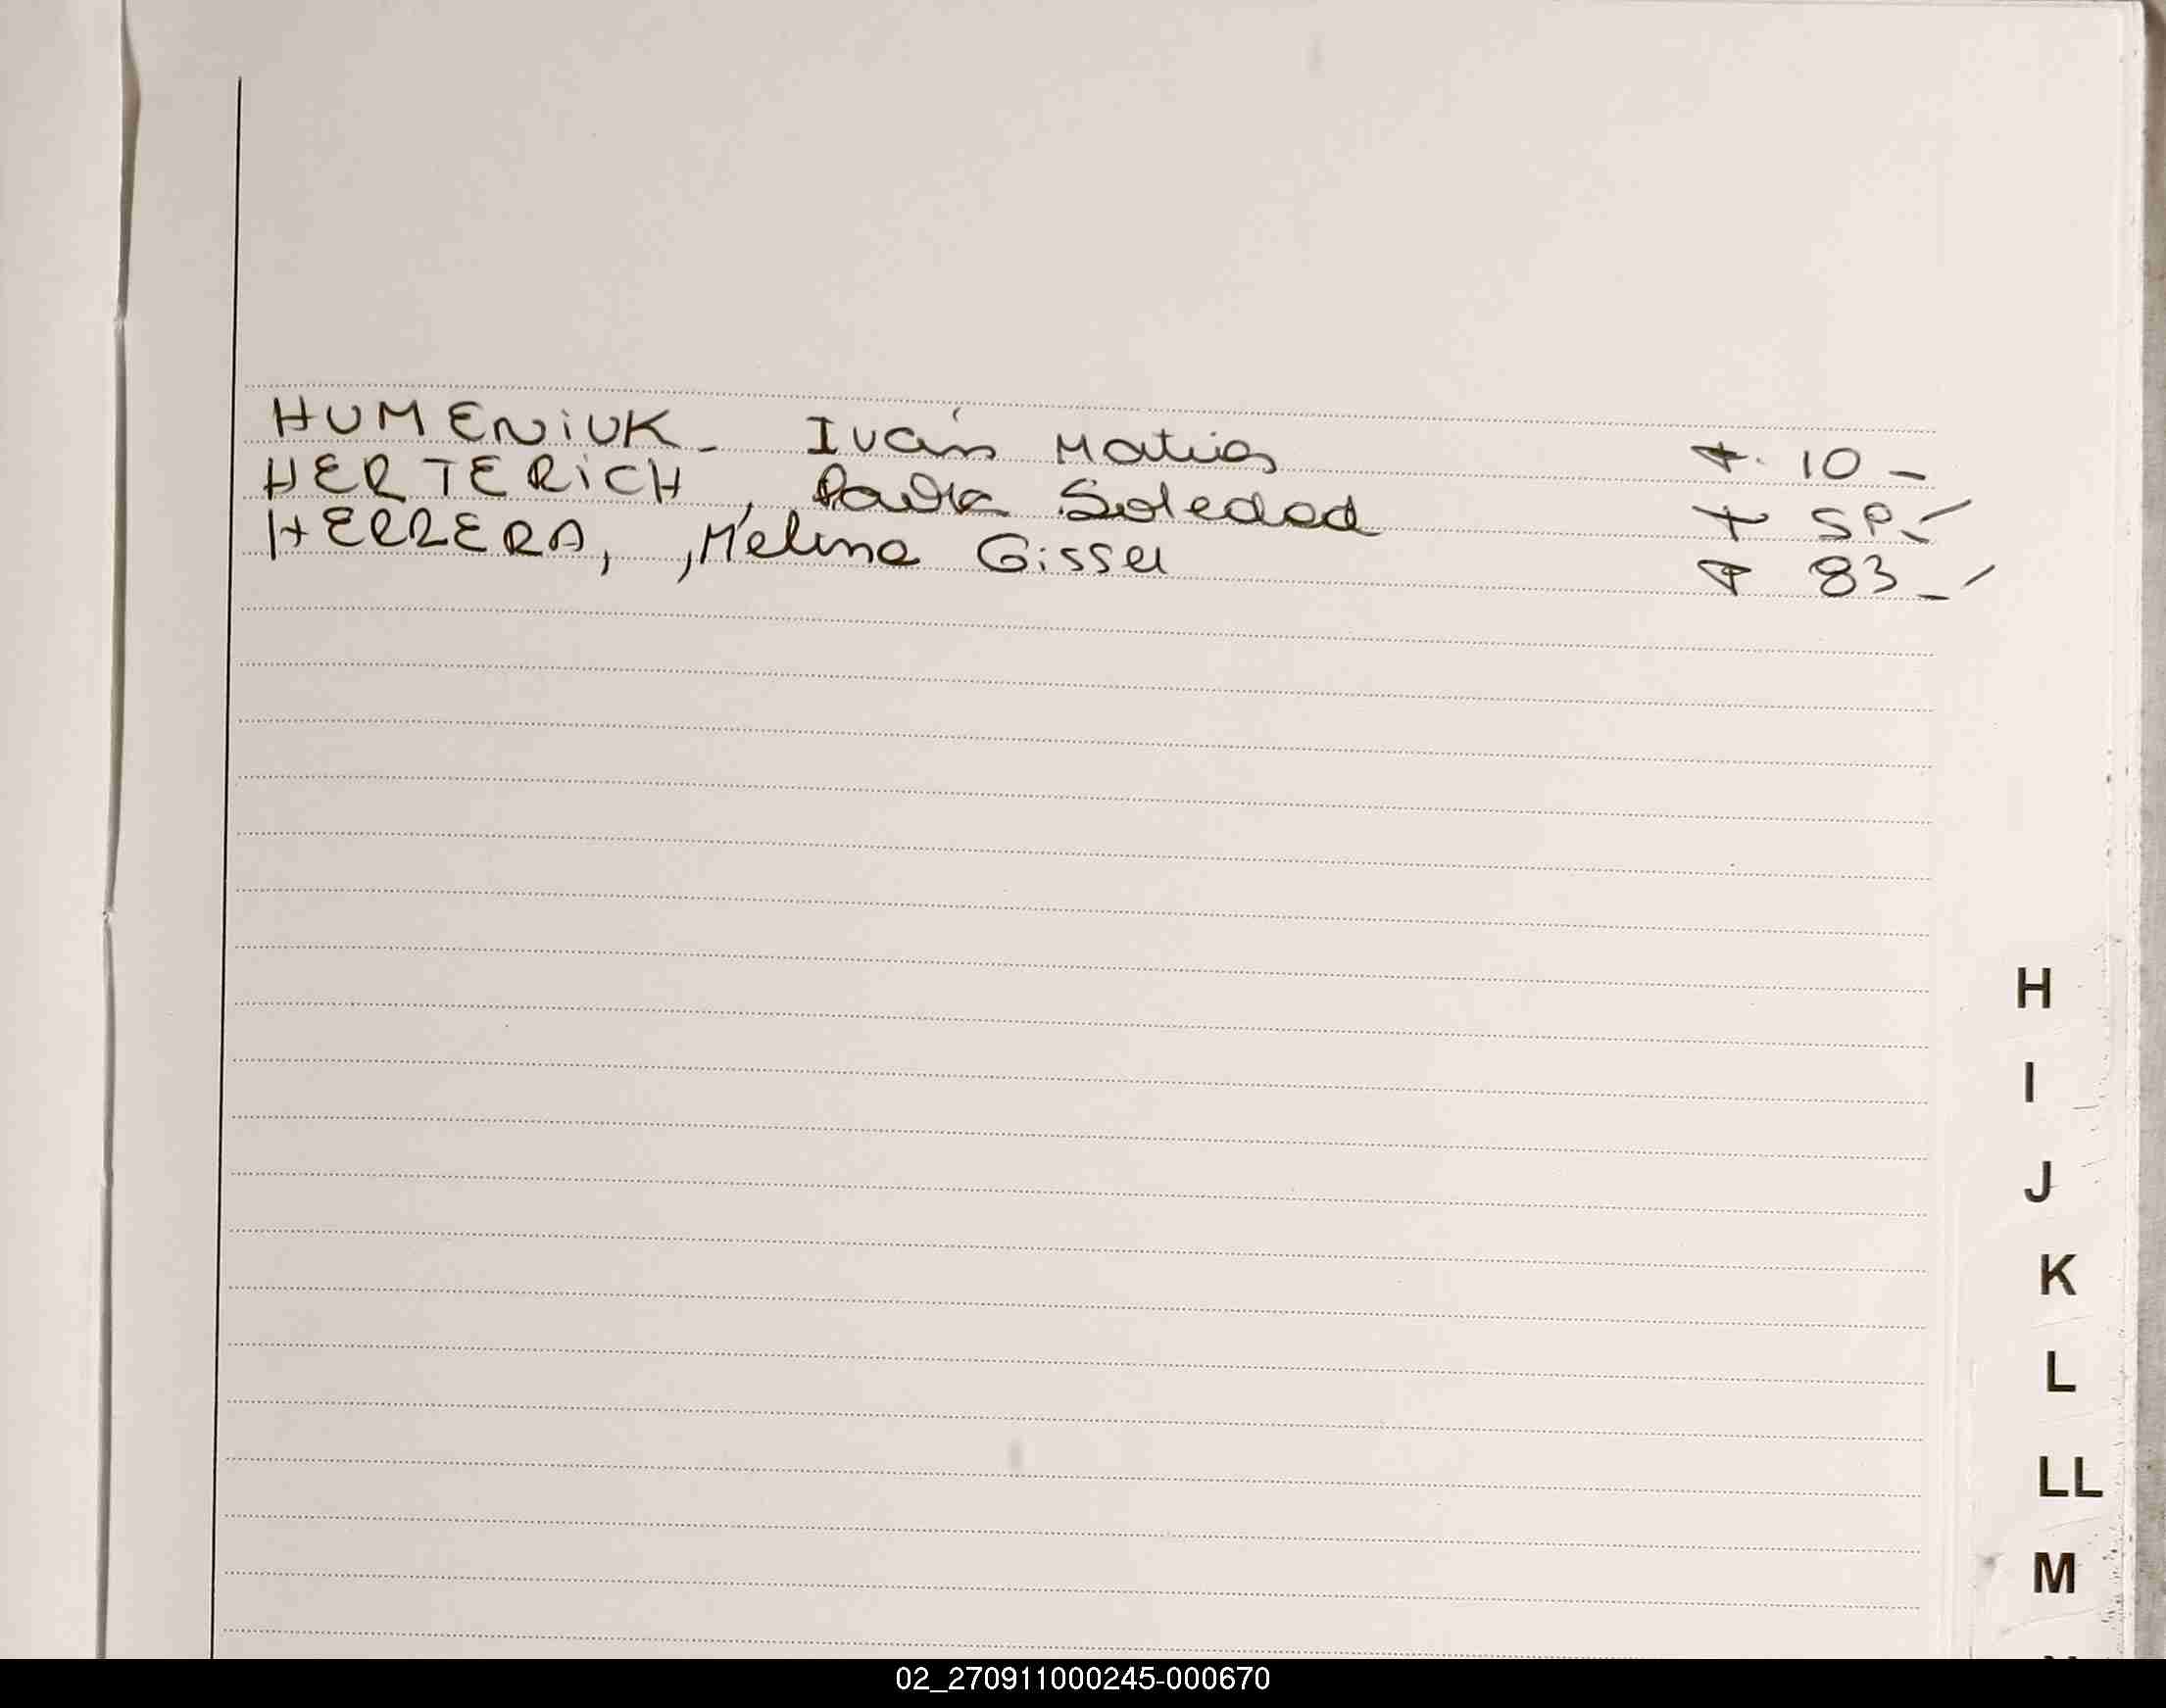 HUMENIUK - Iván Matias F. 10 -
HERTERICH, Paula Soledad F 59 -
HERRERA, Melina Gissel F 83 -
H
I
J
K
L
LL
M
02_270911000245-000670